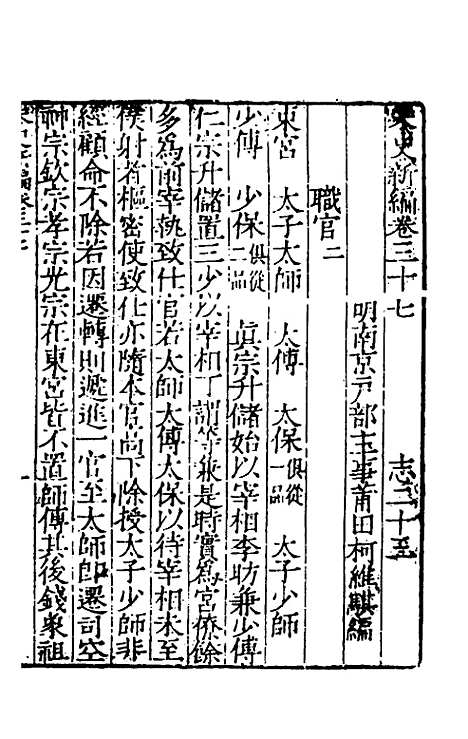 宋史新編卷三十七　志二十三
明南京戸部主事莆田柯維騏編
職官二
東宮　太子太師　太傅　太保俱從一品　太子少師
少傅　少保俱從二品　眞宗升儲始以宰相李昉兼少傅
仁宗升儲置三少以宰相丁謂等兼是時實爲宮僚餘
多爲前宰執致仕官若太師太傅太保以待宰相未至
僕射者樞密使致仕亦隨本官高下除授太子少師非
經顧命不除若因遷轉則遞進一官至太師卽遷司空
神宗欽宗孝宗光宗在東宮皆不置師傅其後錢象祖